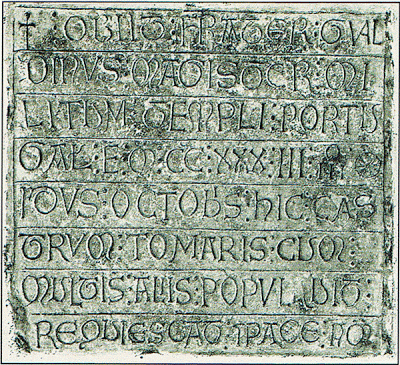 † OBIIT : FRATER : GVAL
DINVS : MAGISTER : MI
LITVM : TEMPLI : PORTV
GAL : E : M : CC : XXX : III :
OCTOBS : HIC : CAS
TRVM : TOMARIS : CVM :
MVLTIS : ALIIS :
REQVIESCAT : I PACE :